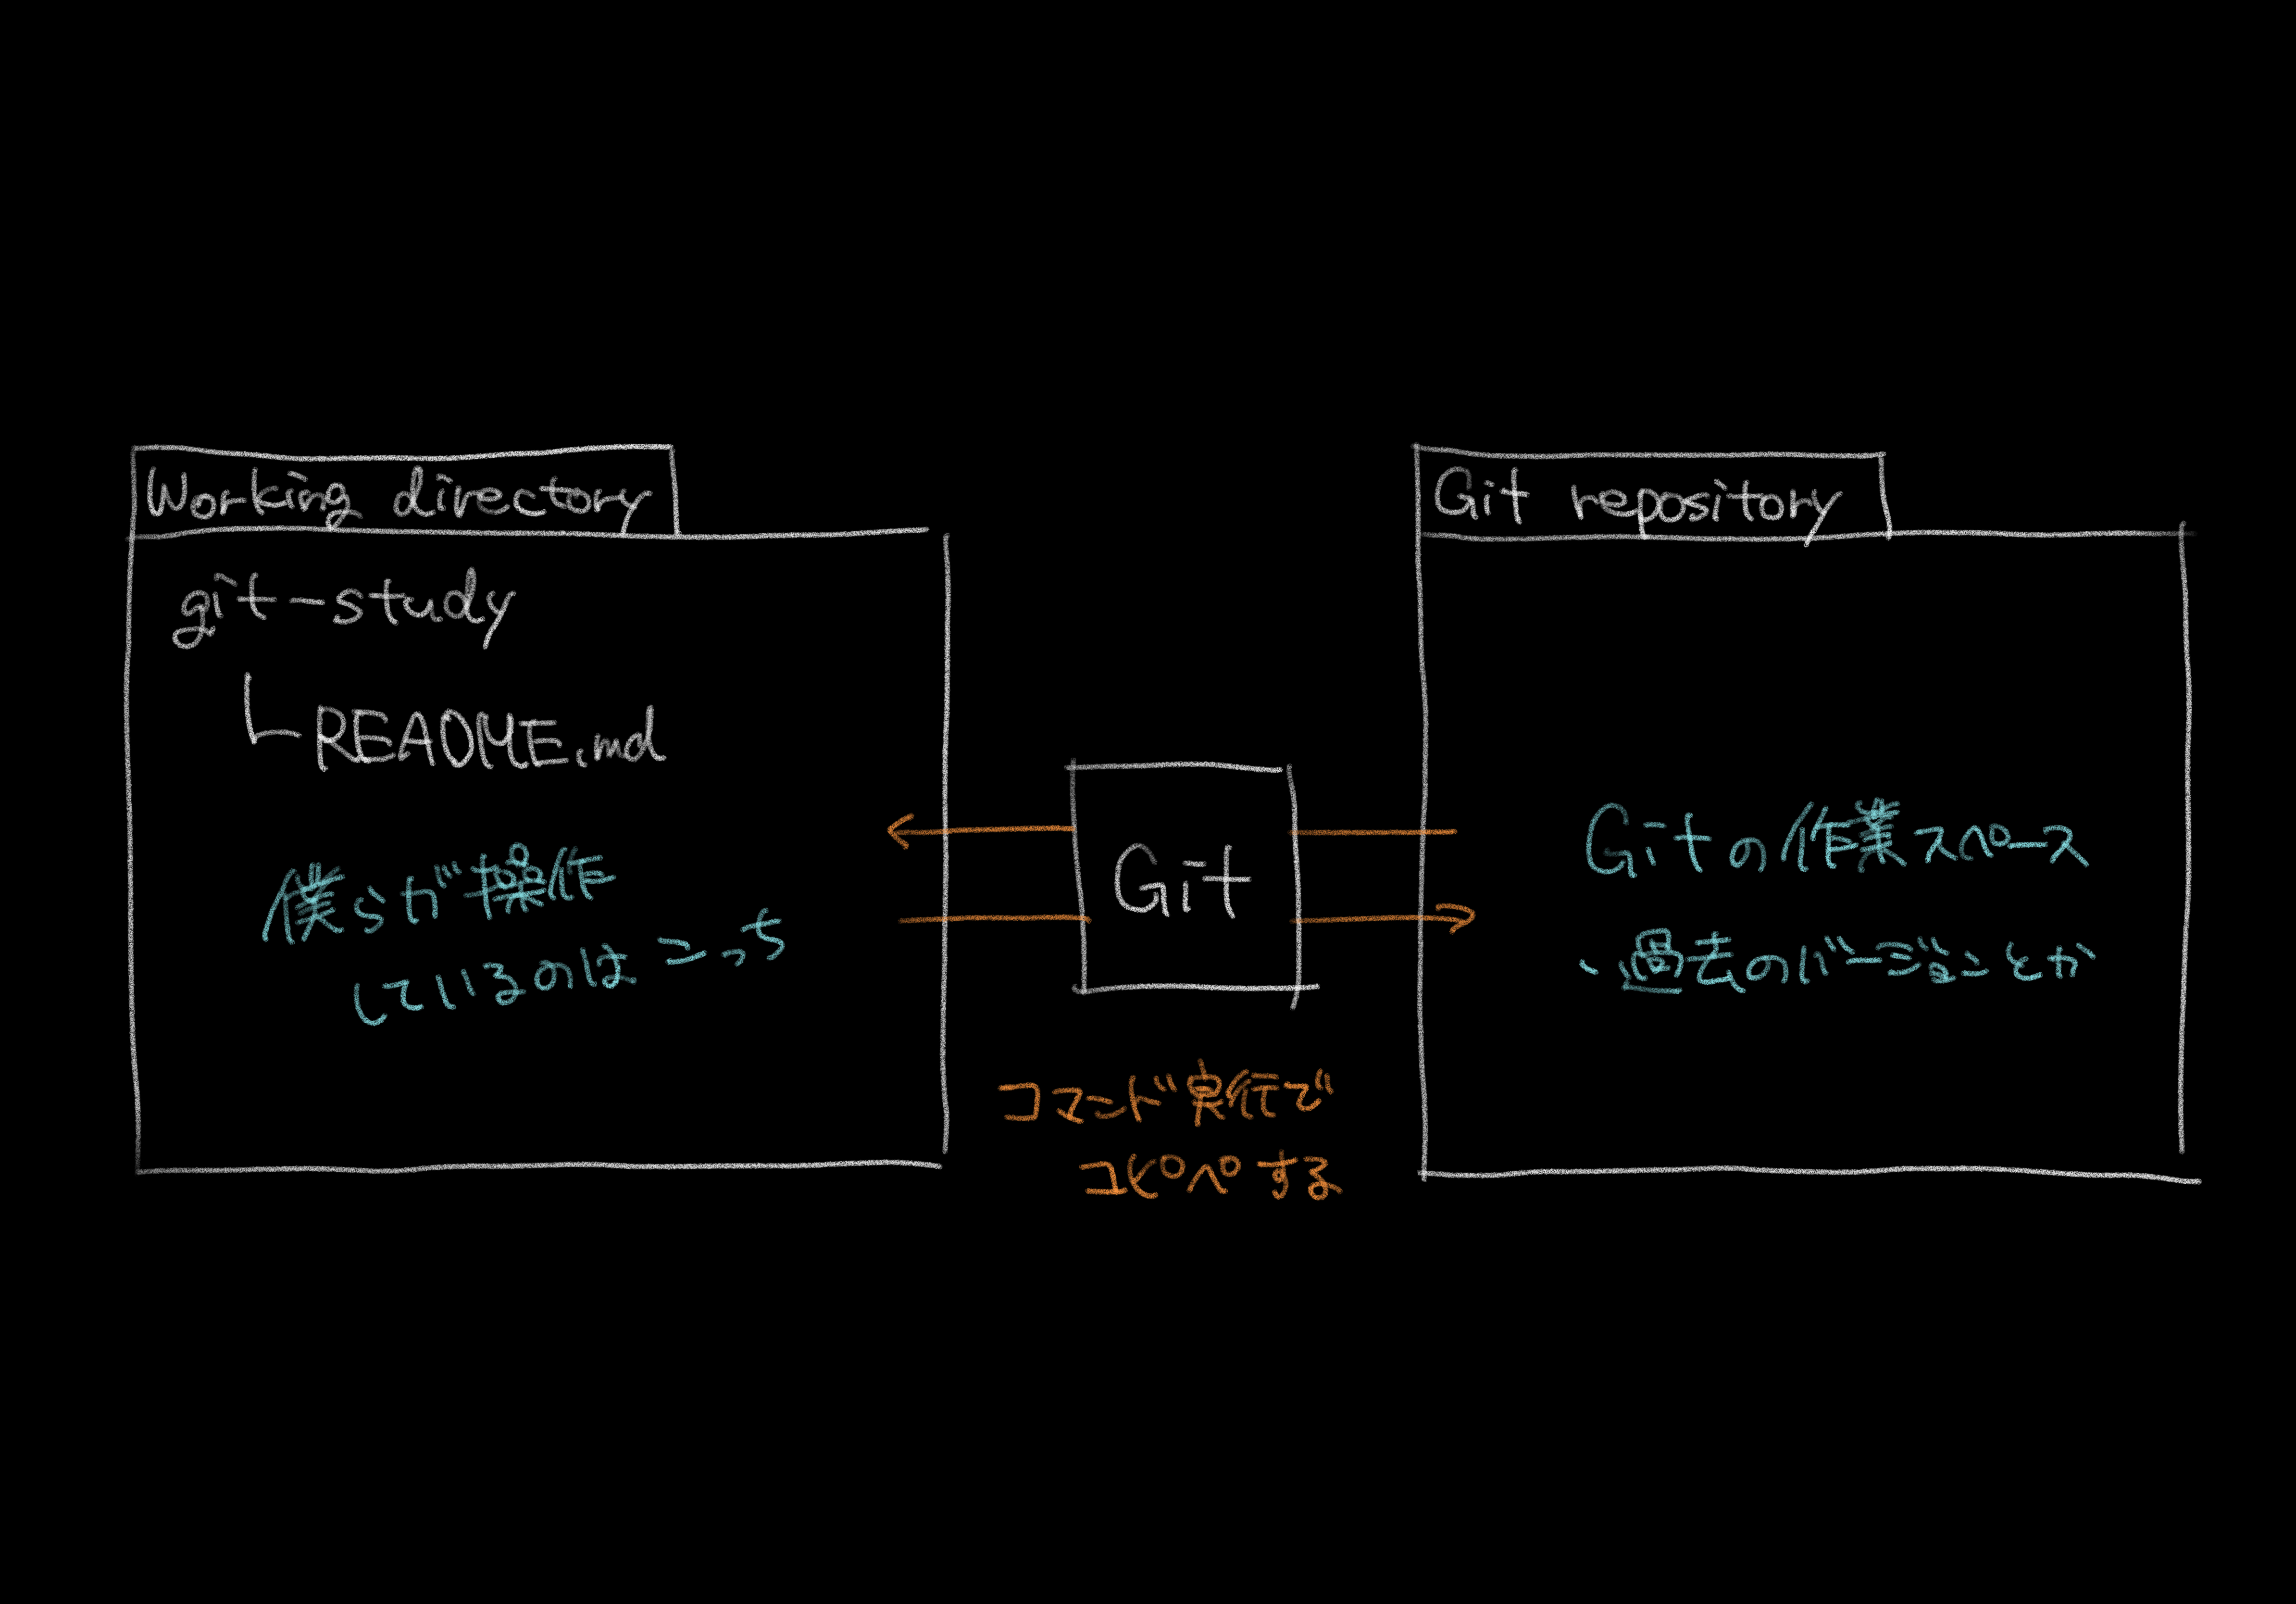 Working directory
git-study
README.md
僕らが操作
しているのはこっち
Git
コマンド実行で
コピペする
Git repository
Gitの作業スペース
・過去のバージョンとか